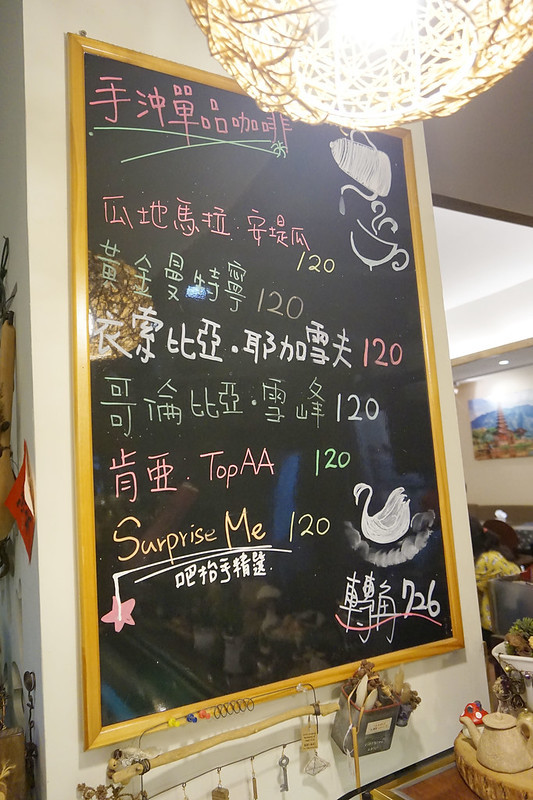 手沖單品咖啡
瓜地馬拉.安堤瓜
120
黃金曼特寧 120
衣索比亞.耶加雪夫 120
哥倫比亞.雪峰 120
肯亞.TopAA 120
Surprise Me 120
吧枱手精選
轉角726